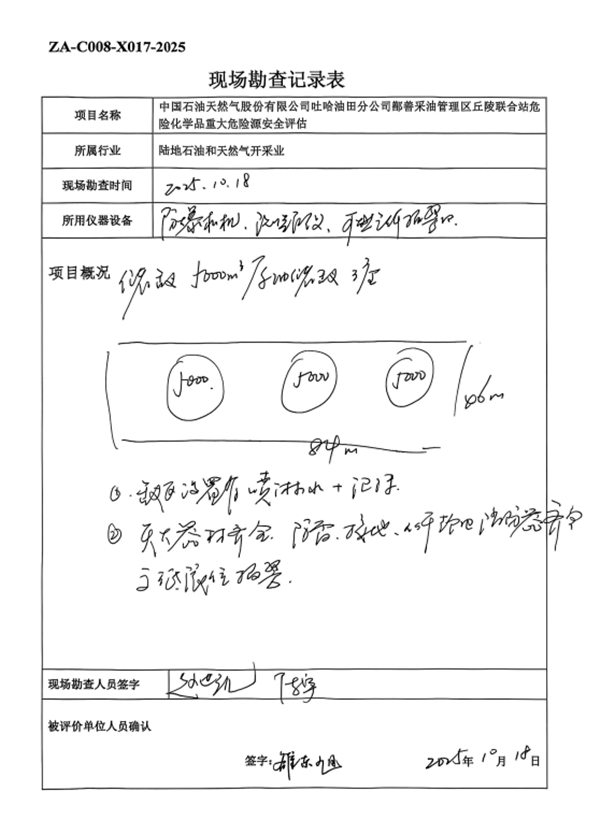 ZA-C008-X017-2025
现场勘查记录表
项目名称
中国石油天然气股份有限公司吐哈油田分公司鄯善采油管理区丘陵联合站危
险化学品重大危险源安全评估
所属行业
陆地石油和天然气开采业
现场勘查时间
2025.10.18
所用仪器设备
防爆相机、测距仪、
项目概况
储罐 5000m³ 原油储罐 3座
5000.
5000
5000
46m
84m
① 罐区设置有喷淋水+
② 灭火器材齐全. 防雷、接地、消防器齐全
高低液位报警.
现场勘查人员签字
被评价单位人员确认
签字:
2025年 10月 18日